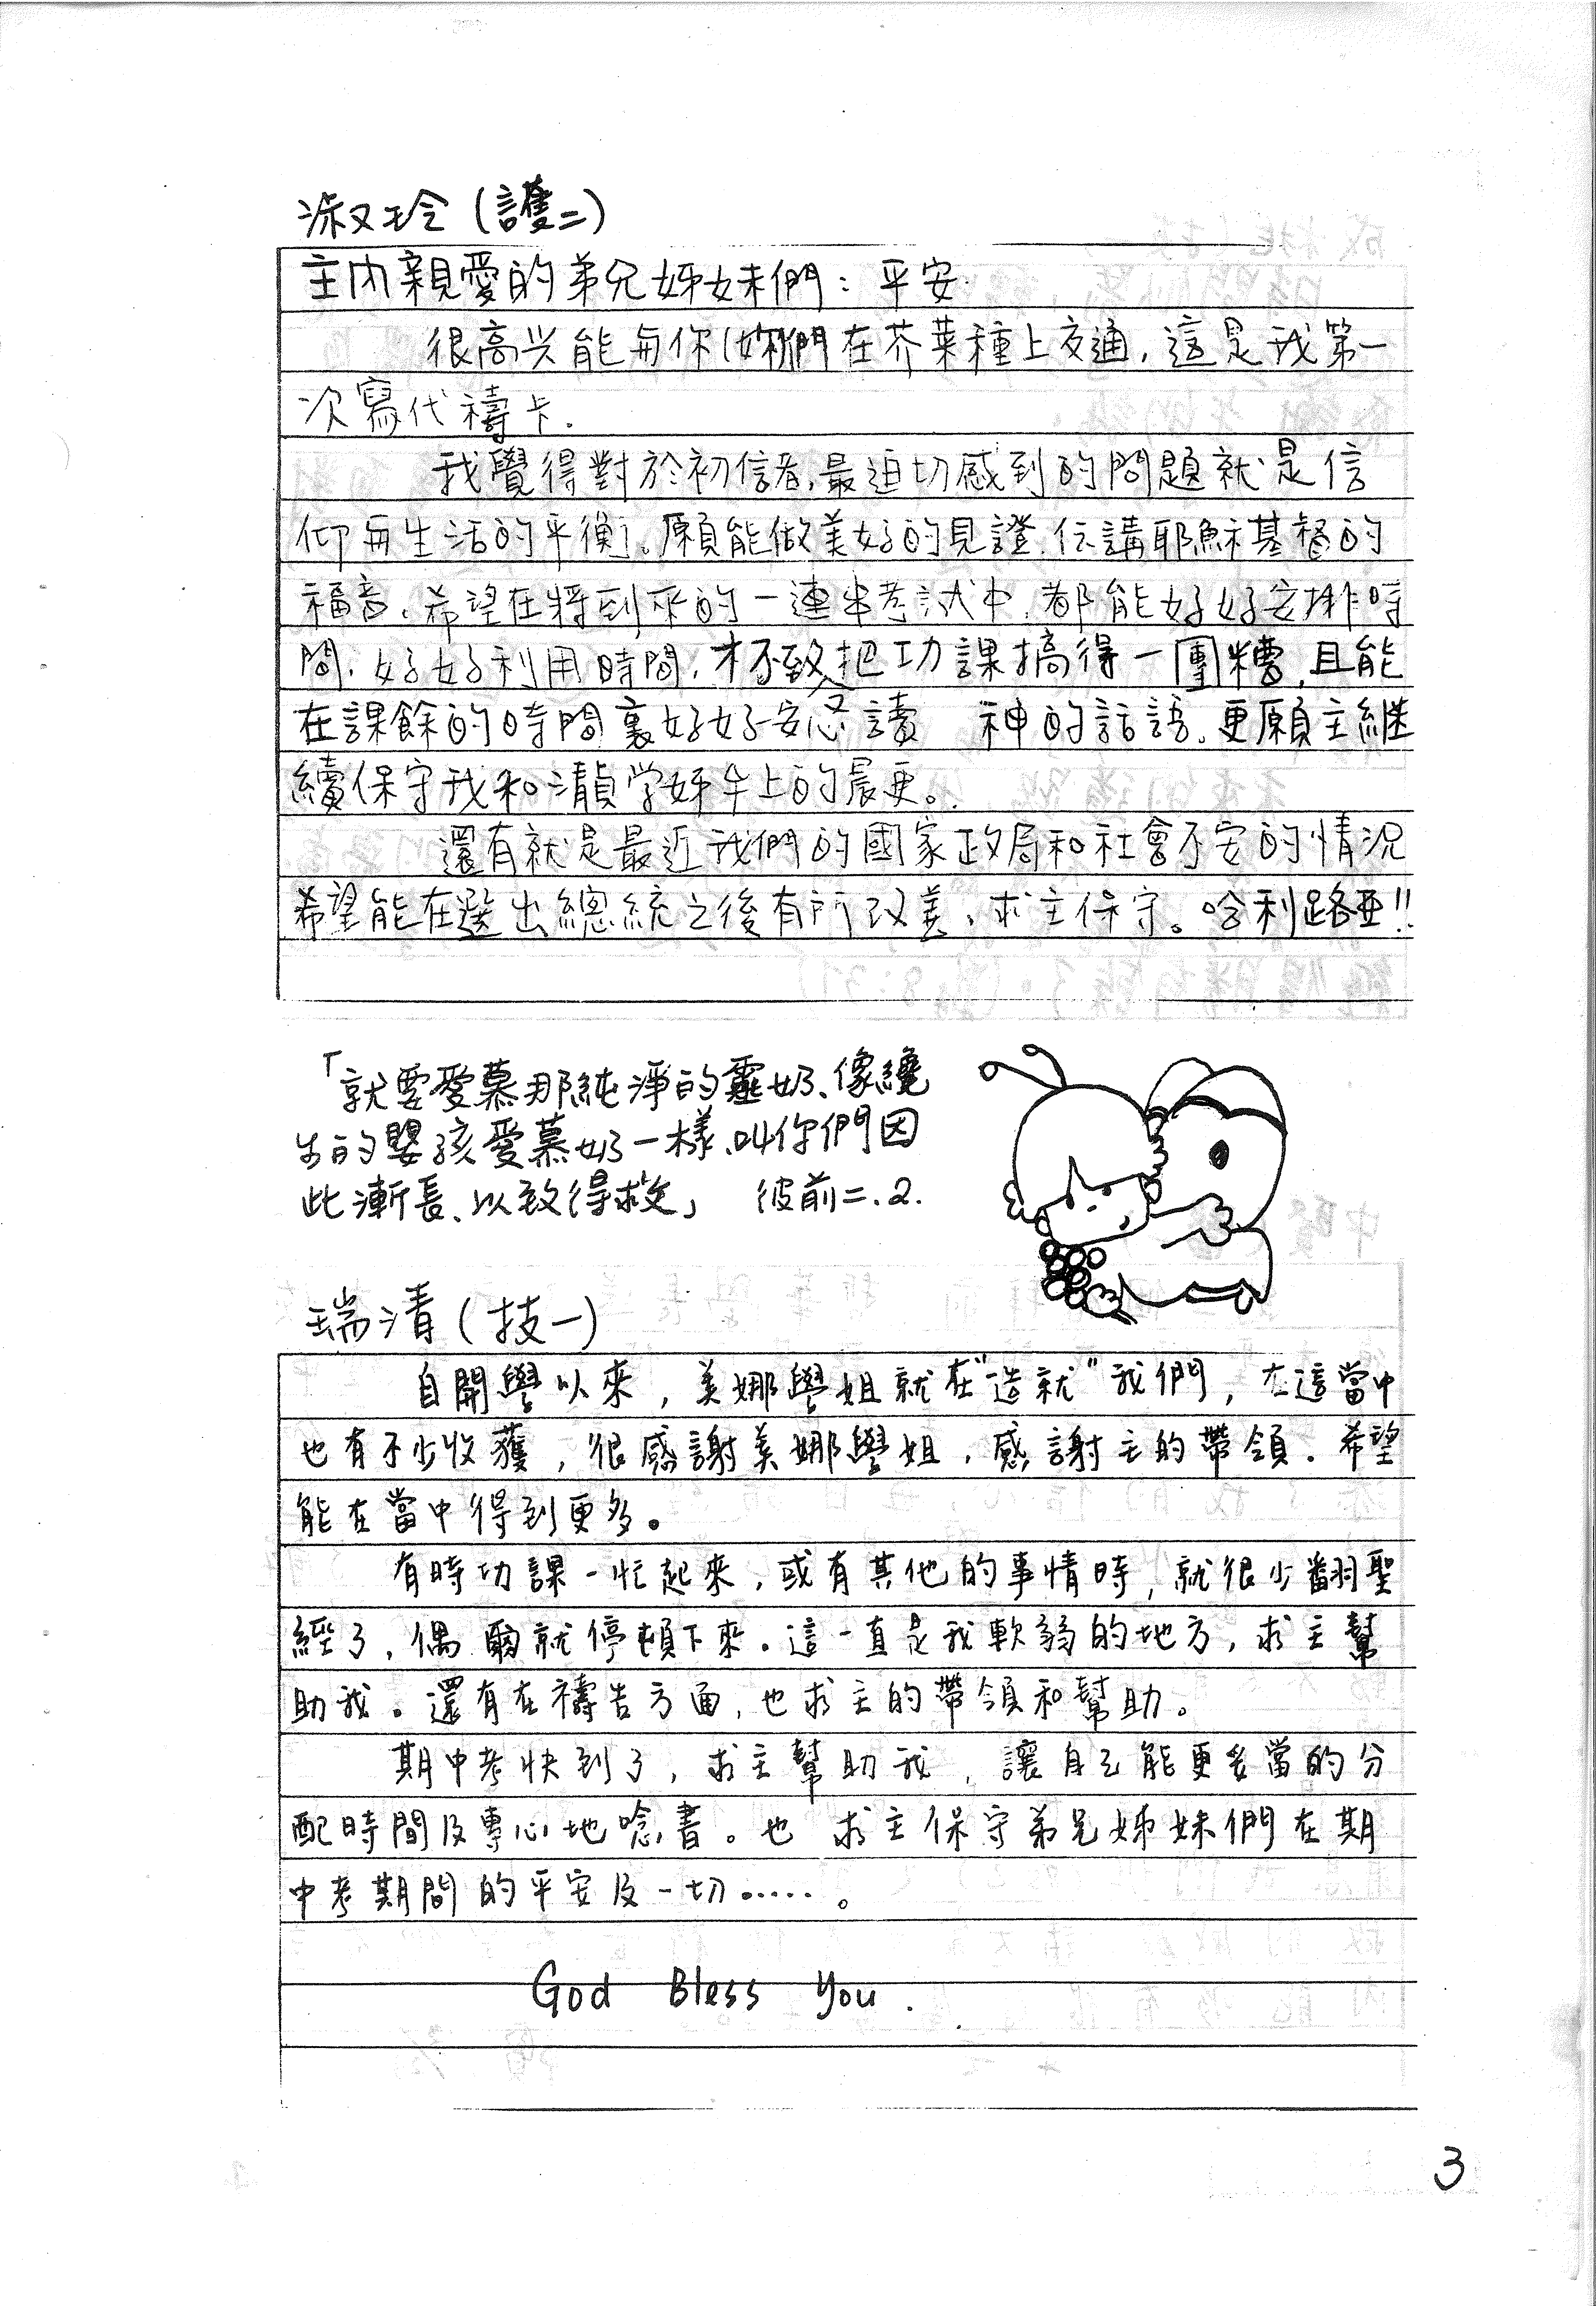 淑玲(護二)
主內親愛的弟兄姊妹們：平安
很高兴能與你(妳)們在芥菜種上交通，這是我第一
次寫代禱卡.
我覺得對於初信者,最迫切感到的問題就是信
仰與生活的平衡。願能做美好的見證,傳講耶穌基督的
福音,希望在將到來的一連串考試中,都能好好安排時
間,好好利用時間,才不致把功課搞得一團糟,且能
在課餘的時間裏好好安息讀 神的話語,更願主繼
續保守我和清貞学姊早上的晨更。
還有就是最近我們的國家政局和社會不安的情況
希望能在選出總統之後有所改善,求主保守。哈利路亞!!
「就要愛慕那純淨的靈奶、像纔
生的嬰孩愛慕奶一樣、叫你們因
此漸長、以致得救」 彼前二.2.
瑞清(技一)
自開學以來，美娜學姐就在“造就”我們，在這當中
也有不少收獲，很感謝美娜學姐，感謝主的帶領．希望
能在當中得到更多。
有時功課一忙起來，或有其他的事情時，就很少翻聖
經了，偶爾就停頓下來．這一直是我軟弱的地方，求主幫
助我。還有在禱告方面，也求主的帶領和幫助。
期中考快到了，求主幫助我，讓自己能更妥當的分
配時間及專心地唸書。也 求主保守弟兄姊妹們在期
中考期間的平安及一切……。
God Bless You .
3